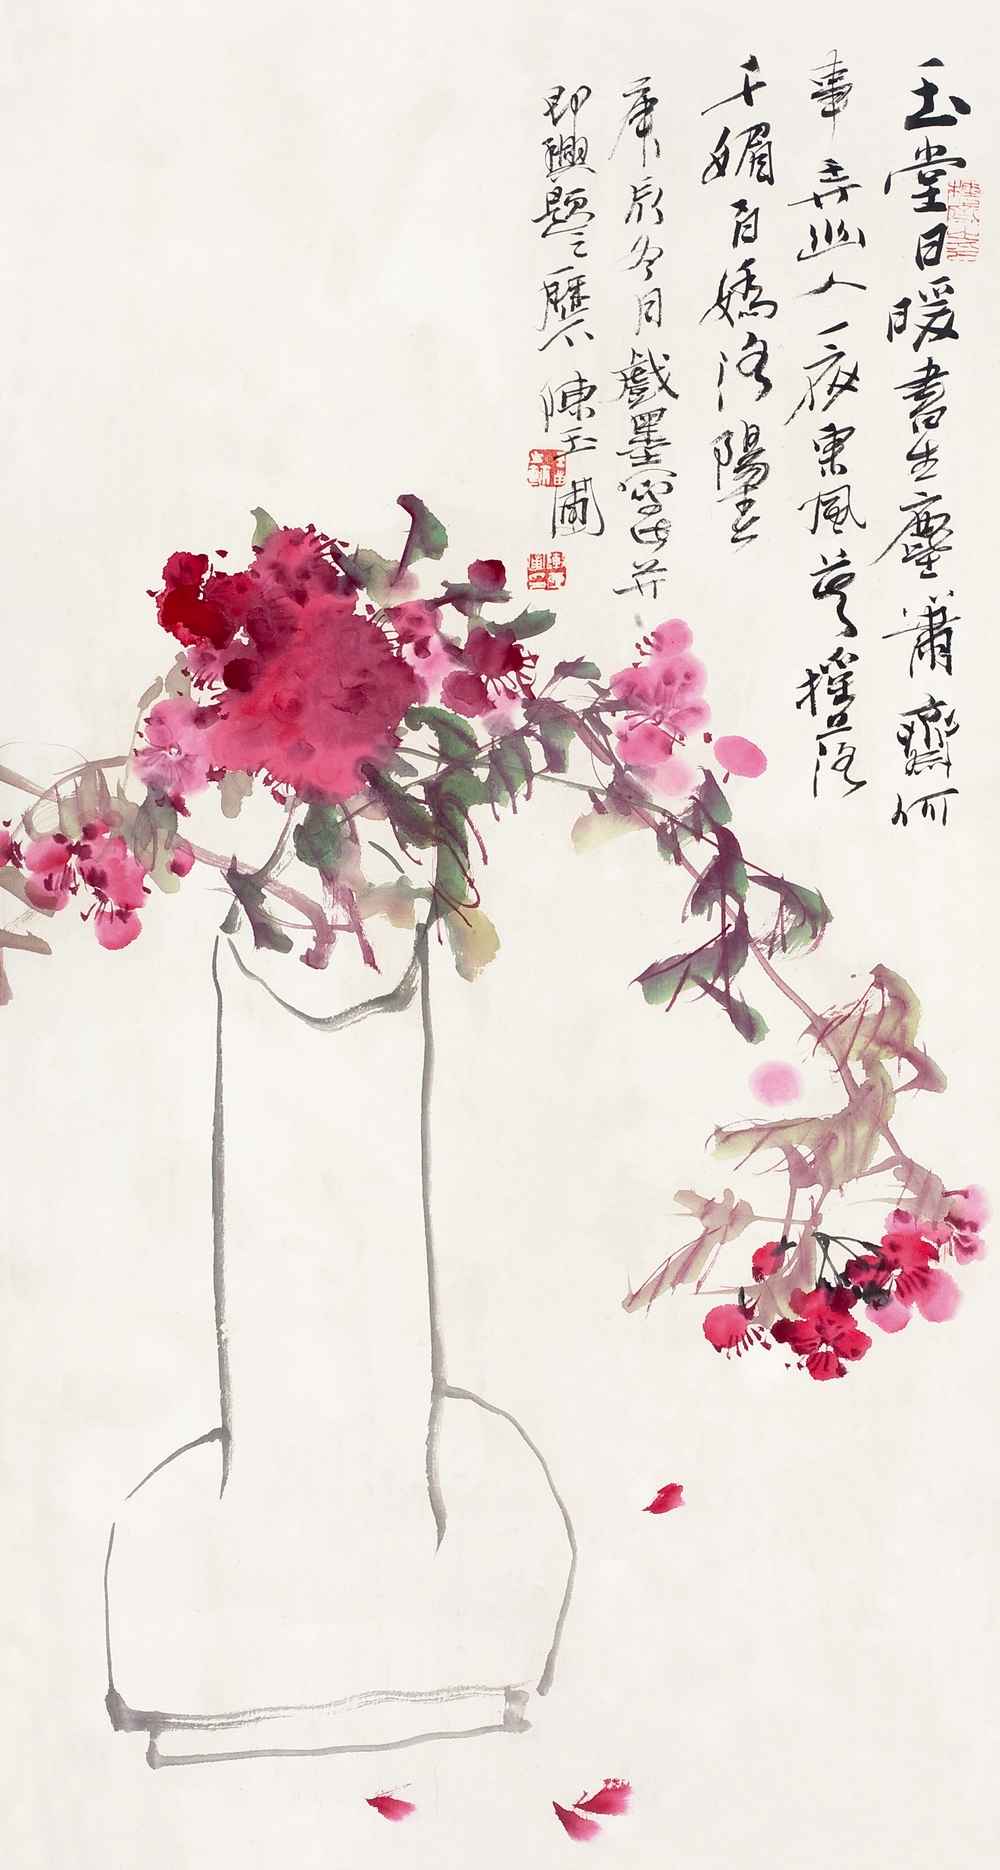 玉堂日暖書生塵蕭齋何
事弄幽人一夜東風莫搖落
千媚百嬌洛陽春
庚辰冬月戲墨寫此並
即興題之應不 陳玉圃